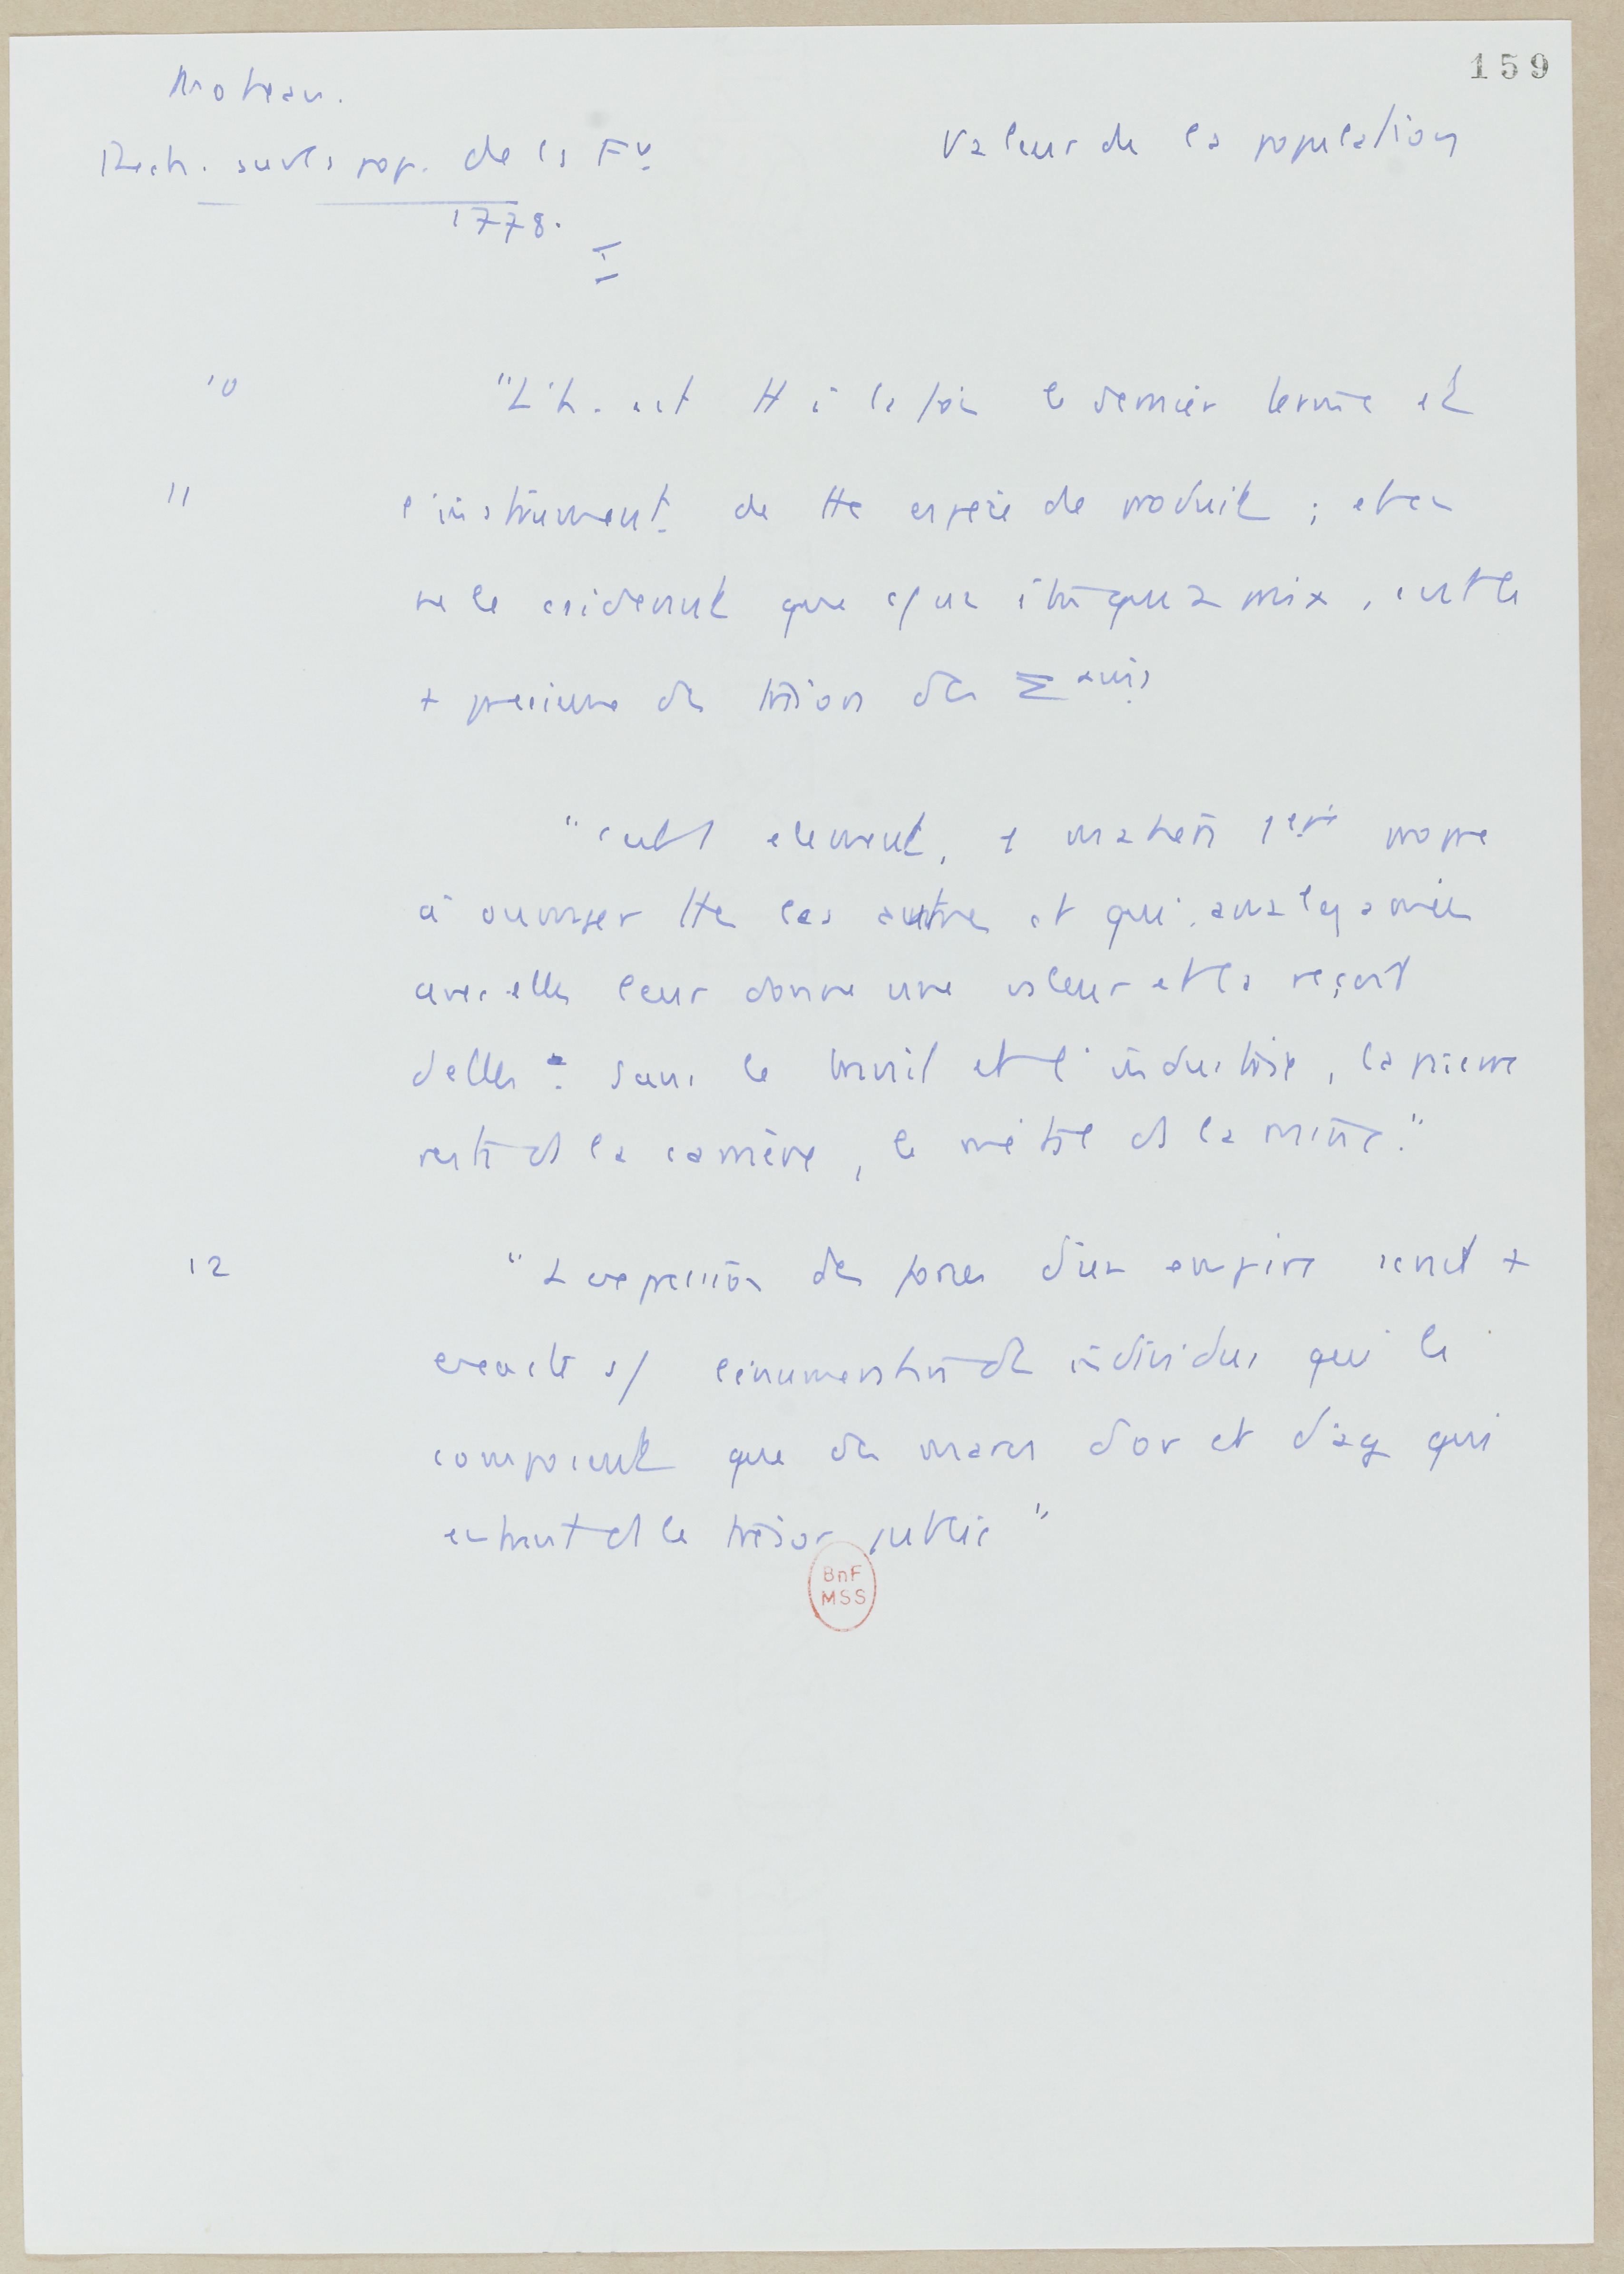 159
Moheau.
Valeur de la population
Rech. sur la pop. de la Fr
1778.
I
10 "L'h. est tt à la fois le dernier terme et
11 l'instrument de tte espèce de produit ; et en
ne le considerant que c/ un être qui a prix, c'est le
+ precieux des trésors des Σ ains
"c'est 1 element, 1 matière 1ere propre
à ouvrager ttes les autres et qui, amalgamée
avec elles leur donne une valeur et la reçoit
d'elles : sans le travail et l'industrie, la pierre
reste ds la carrière, le métal ds la mine."
12 "L'expression des forces d'un empire serait +
exacte s/ l'énumération des individus qui le
composent que des marcs d'or et d'arg qui
entrent ds le trésor public"
BnF
MSS